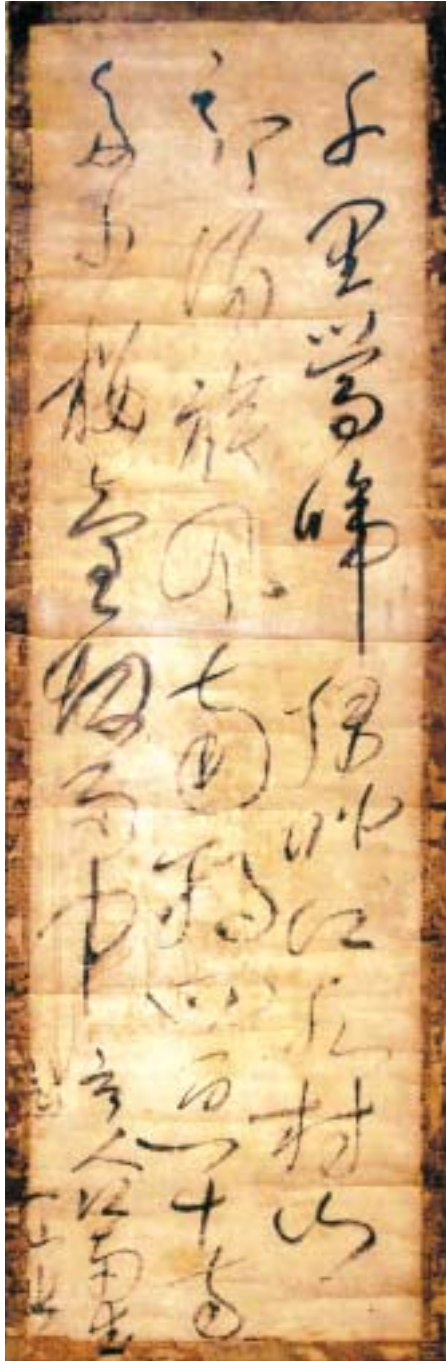 千里鶯啼緑映紅水村山
郭酒旗風南朝四百八十寺
多少樓臺烟雨中
人江南